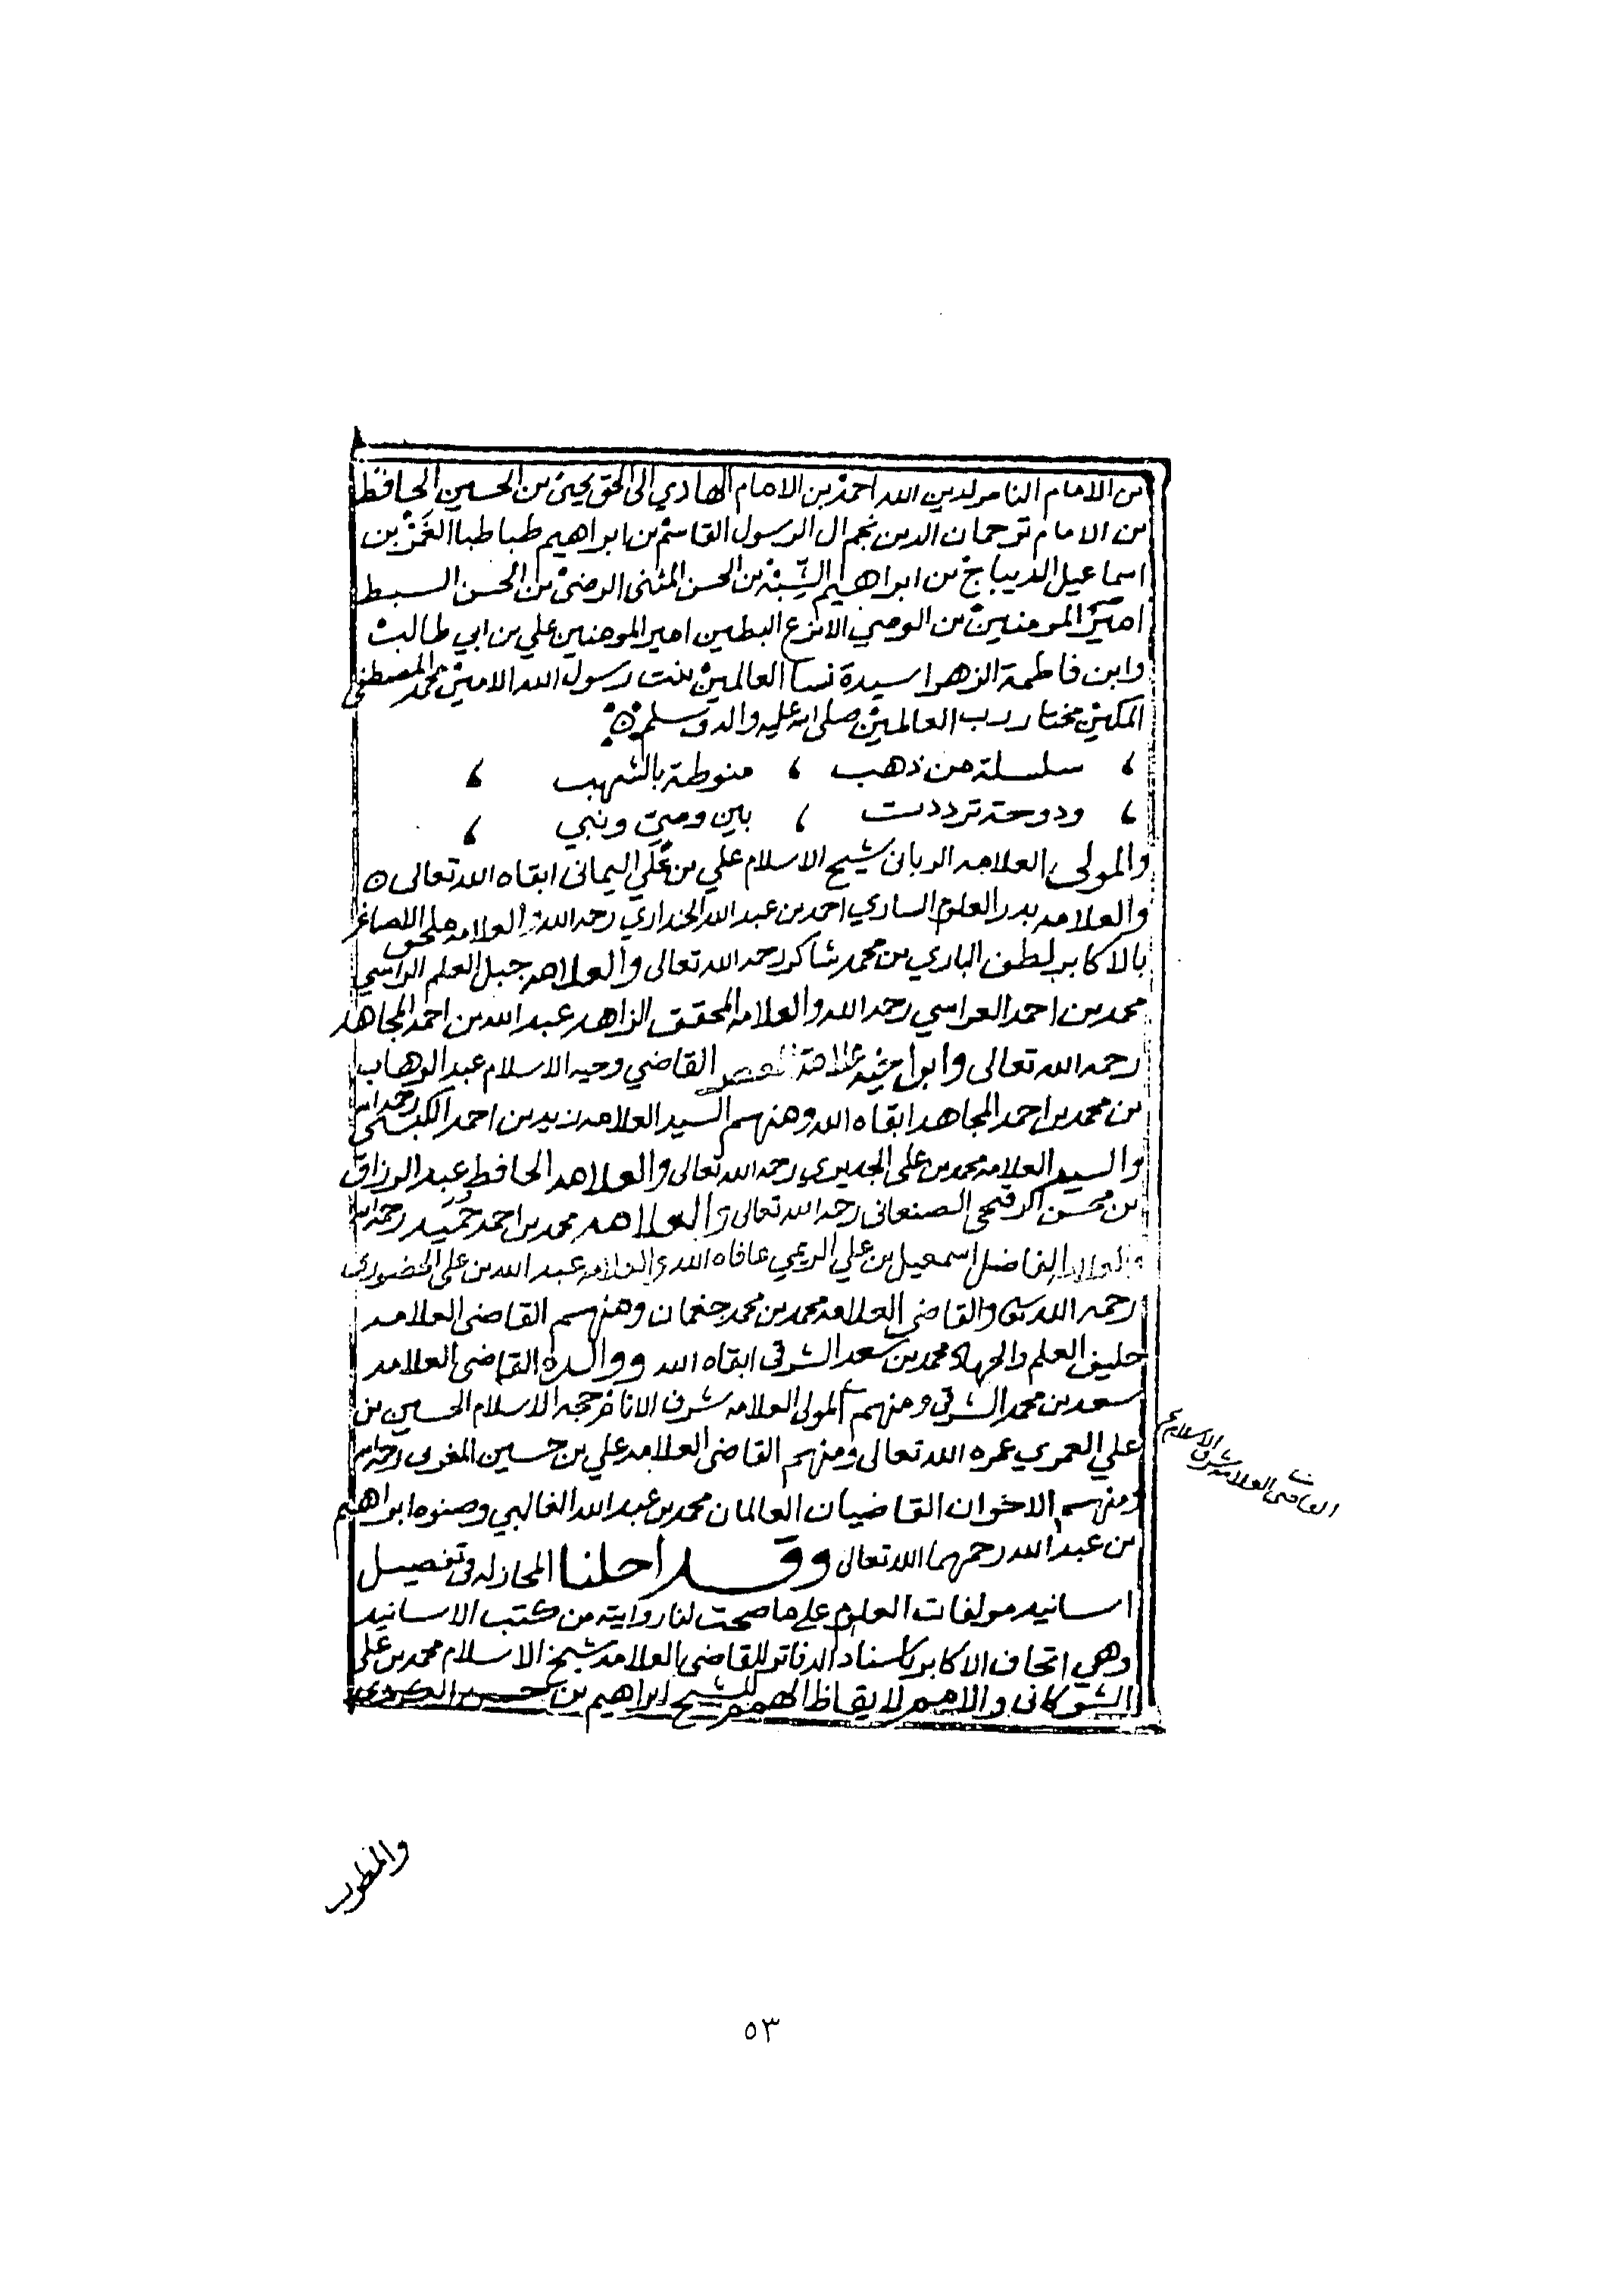 بن الامام الناصر لدين الله احمد بن الامام الهادي الى الحق يحيى بن الحسين الحافظ
بن الامام ترجمان الدين نجم ال الرسول القاسم بن ابراهيم طباطبا الغمر بن
اسماعيل الديباج بن ابراهيم الشبه بن الحسن المثنى الرضى بن الحسن السبط
امير المومنين بن الوصي الانزع البطين امير المومنين علي بن ابي طالب
وابن فاطمة الزهرا سيدة نسا العالمين بنت رسول الله الامين محمد المصطفى
المكين مختار رب العالمين صلى الله عليه واله وسلم
سلسلة من ذهب ، منوطة بالشهب ،
ودوحة ترددت ، بين وصي ونبي ،
والمولى العلامه الربان شيخ الاسلام علي بن علي اليماني ابقاه الله تعالى
والعلامه بدر العلوم الساري احمد بن عبد الله الجنداري رحمه الله والعلامه ملحق الاصاغر
بالاكابر لطف الباري بن محمد شاكر رحمه الله تعالى والعلامه جبل العلم الراسي
محمد بن احمد العراسي رحمه الله والعلامه المحقق الزاهد عبد الله بن احمد المجاهد
رحمه الله تعالى وابن اخيه علامة العصر القاضي وجيه الاسلام عبد الوهاب
بن محمد بن احمد المجاهد ابقاه الله ومنهم السيد العلامه زيد بن احمد الكبسي رحمه الله
والسيد العلامه محمد بن على الجديري رحمه الله تعالى والعلامه الحافظ عبد الرزاق
بن محسن الرقيحي الصنعاني رحمه الله تعالى والعلامه محمد بن احمد حميد رحمه الله
والعلامه الفاضل اسمعيل بن علي الريمي عافاه الله والعلامه عبد الله بن على الحضوري
رحمه الله تعالى والقاضي العلامه محمد بن محمد جغمان ومنهم القاضى العلامه
حليف العلم والجهاد محمد بن سعد الشرقي ابقاه الله ووالده القاضى العلامه
سعد بن محمد الشرقي ومنهم المولى العلامه شرف الانام حجه الاسلام الحسين بن
علي العمري عمره الله تعالى ومنهم القاضى العلامه علي بن حسين المغربى رحمه الله
القاضى العلامه شرف الاسلام
ومنهم الاخوان القاضيان العالمان محمد بن عبد الله الغالبي وصنوه ابراهيم
بن عبد الله رحمهما الله تعالى وقد احلنا المجاز له فى تفصيل
اسانيد مولفات العلوم على ما صحت لنا روايته من كتب الاسانيد
وهي اتحاف الاكابر باسناد الدفاتر للقاضي العلامه شيخ الاسلام محمد بن علي
الشوكانى والامم لايقاظ الهمم للشيخ ابراهيم بن حسن الكردي

٥٣